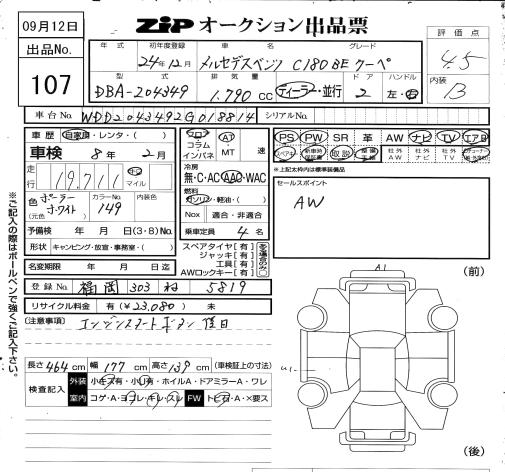 09月12日
出品No.
107
ZIP オークション出品票
評価点
4.5
内装
B
年式 初年度登録 車名 グレード
24年12月 メルセデスベンツ C180BEクーペ
型式 排気量 ドア ハンドル
DBA-204349 1.790 CC ディーラー・並行 2 左・右
車台No. WDD2043492G018814 シリアルNo.
車歴 自家用・レンタ・( )
車検 8年 2月
走行 19,711 キロ マイル
色 (元色) ポーラーホワイト カラーNo. 149 内装色
予備検 年 月 日(3・8)No.
形状 キャンピング・放宣・事務室・( )
名変期限 年 月 日迄
フロア コラム インパネ AT MT 速
冷房
無・C・AC・AAC・WAC
燃料
ガソリン・軽油・( )
Nox 適合・非適合
乗車定員 4 名
スペアタイヤ[有]
ジャッキ[有]
工具[有]
AWロックキー[有]
PS PW SR 革 AW ナビ TV エアB
取説 社外AW 社外ナビ 社外TV
*上記太枠内は標準装備品
セールスポイント
AW
登録No. 福岡 303 ね 5819
リサイクル料金 有(¥23,080) 未
(注意事項) エンジンスタートボタン後日
長さ 464 cm 幅 177 cm 高さ 139 cm (車検証上の寸法)
検査記入 外装 小キズ有・小凹有・ホイルA・ドアミラーA・ワレ
室内 コゲ・A・ヨゴレ・キレ・スレ FW トビ石・A・×要ス
※ご記入の際はボールペンで強くご記入下さい。
A1
(前)
(後)